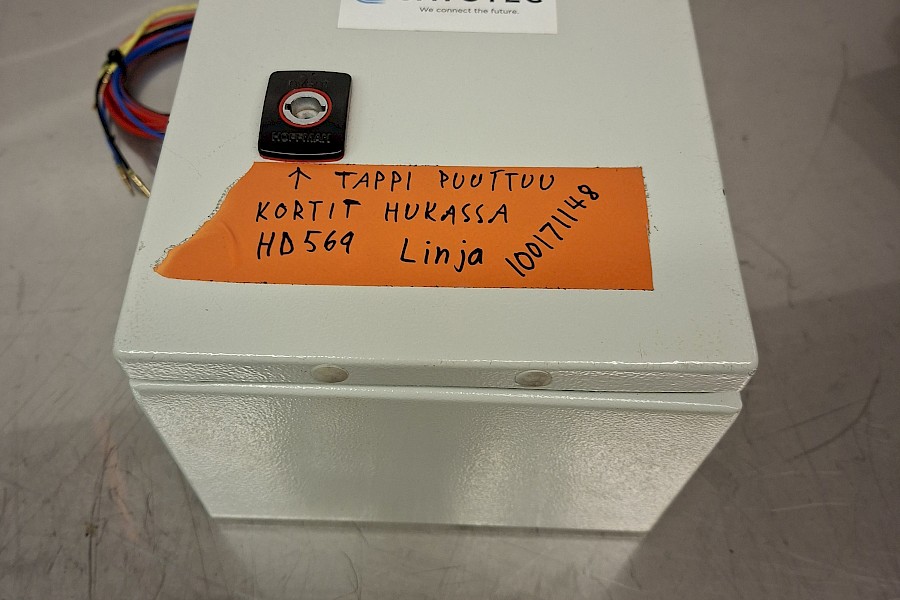 We connect the future.
HOFFMAN
↑ TAPPI PUUTTUU
KORTIT HUKASSA
HD569 Linja 100171148